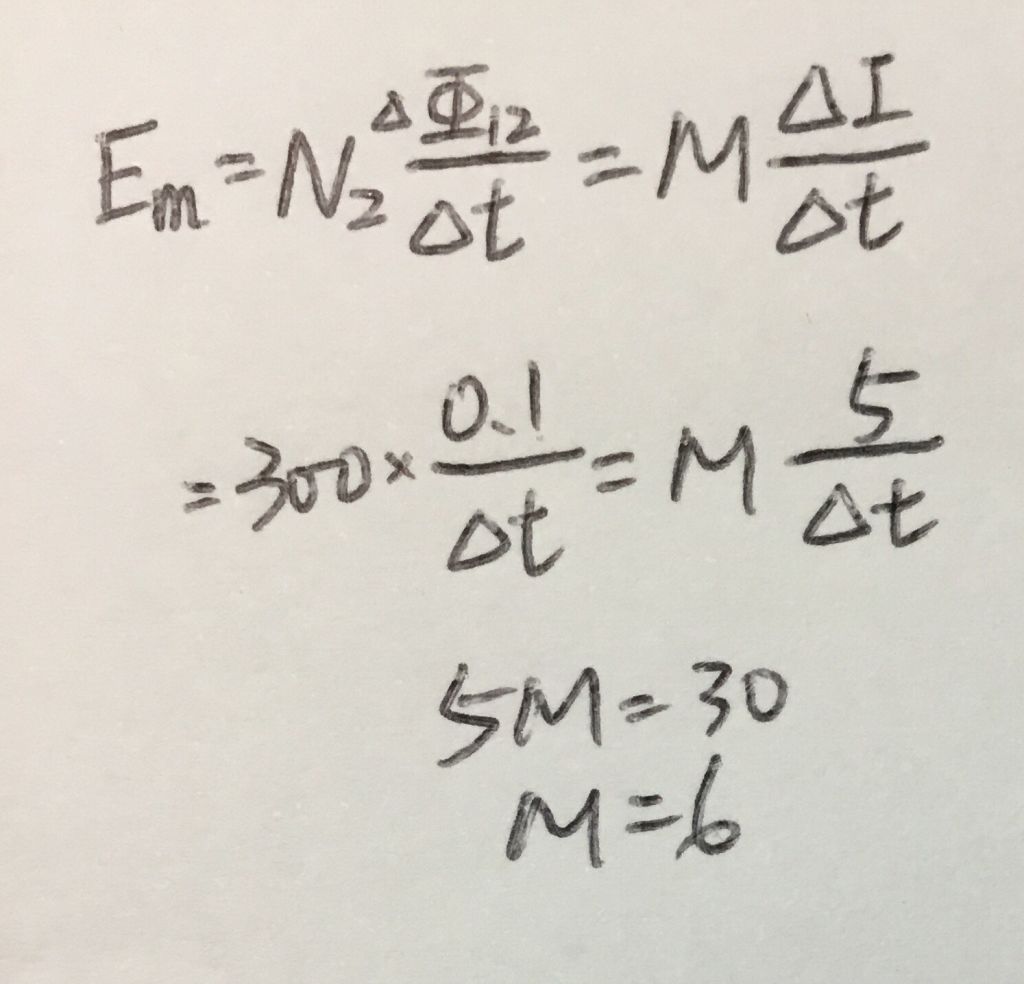 Em = N₂ ΔΦ₁₂/Δt = M ΔI/Δt
= 300 × 0.1/Δt = M 5/Δt
5M = 30
M = 6